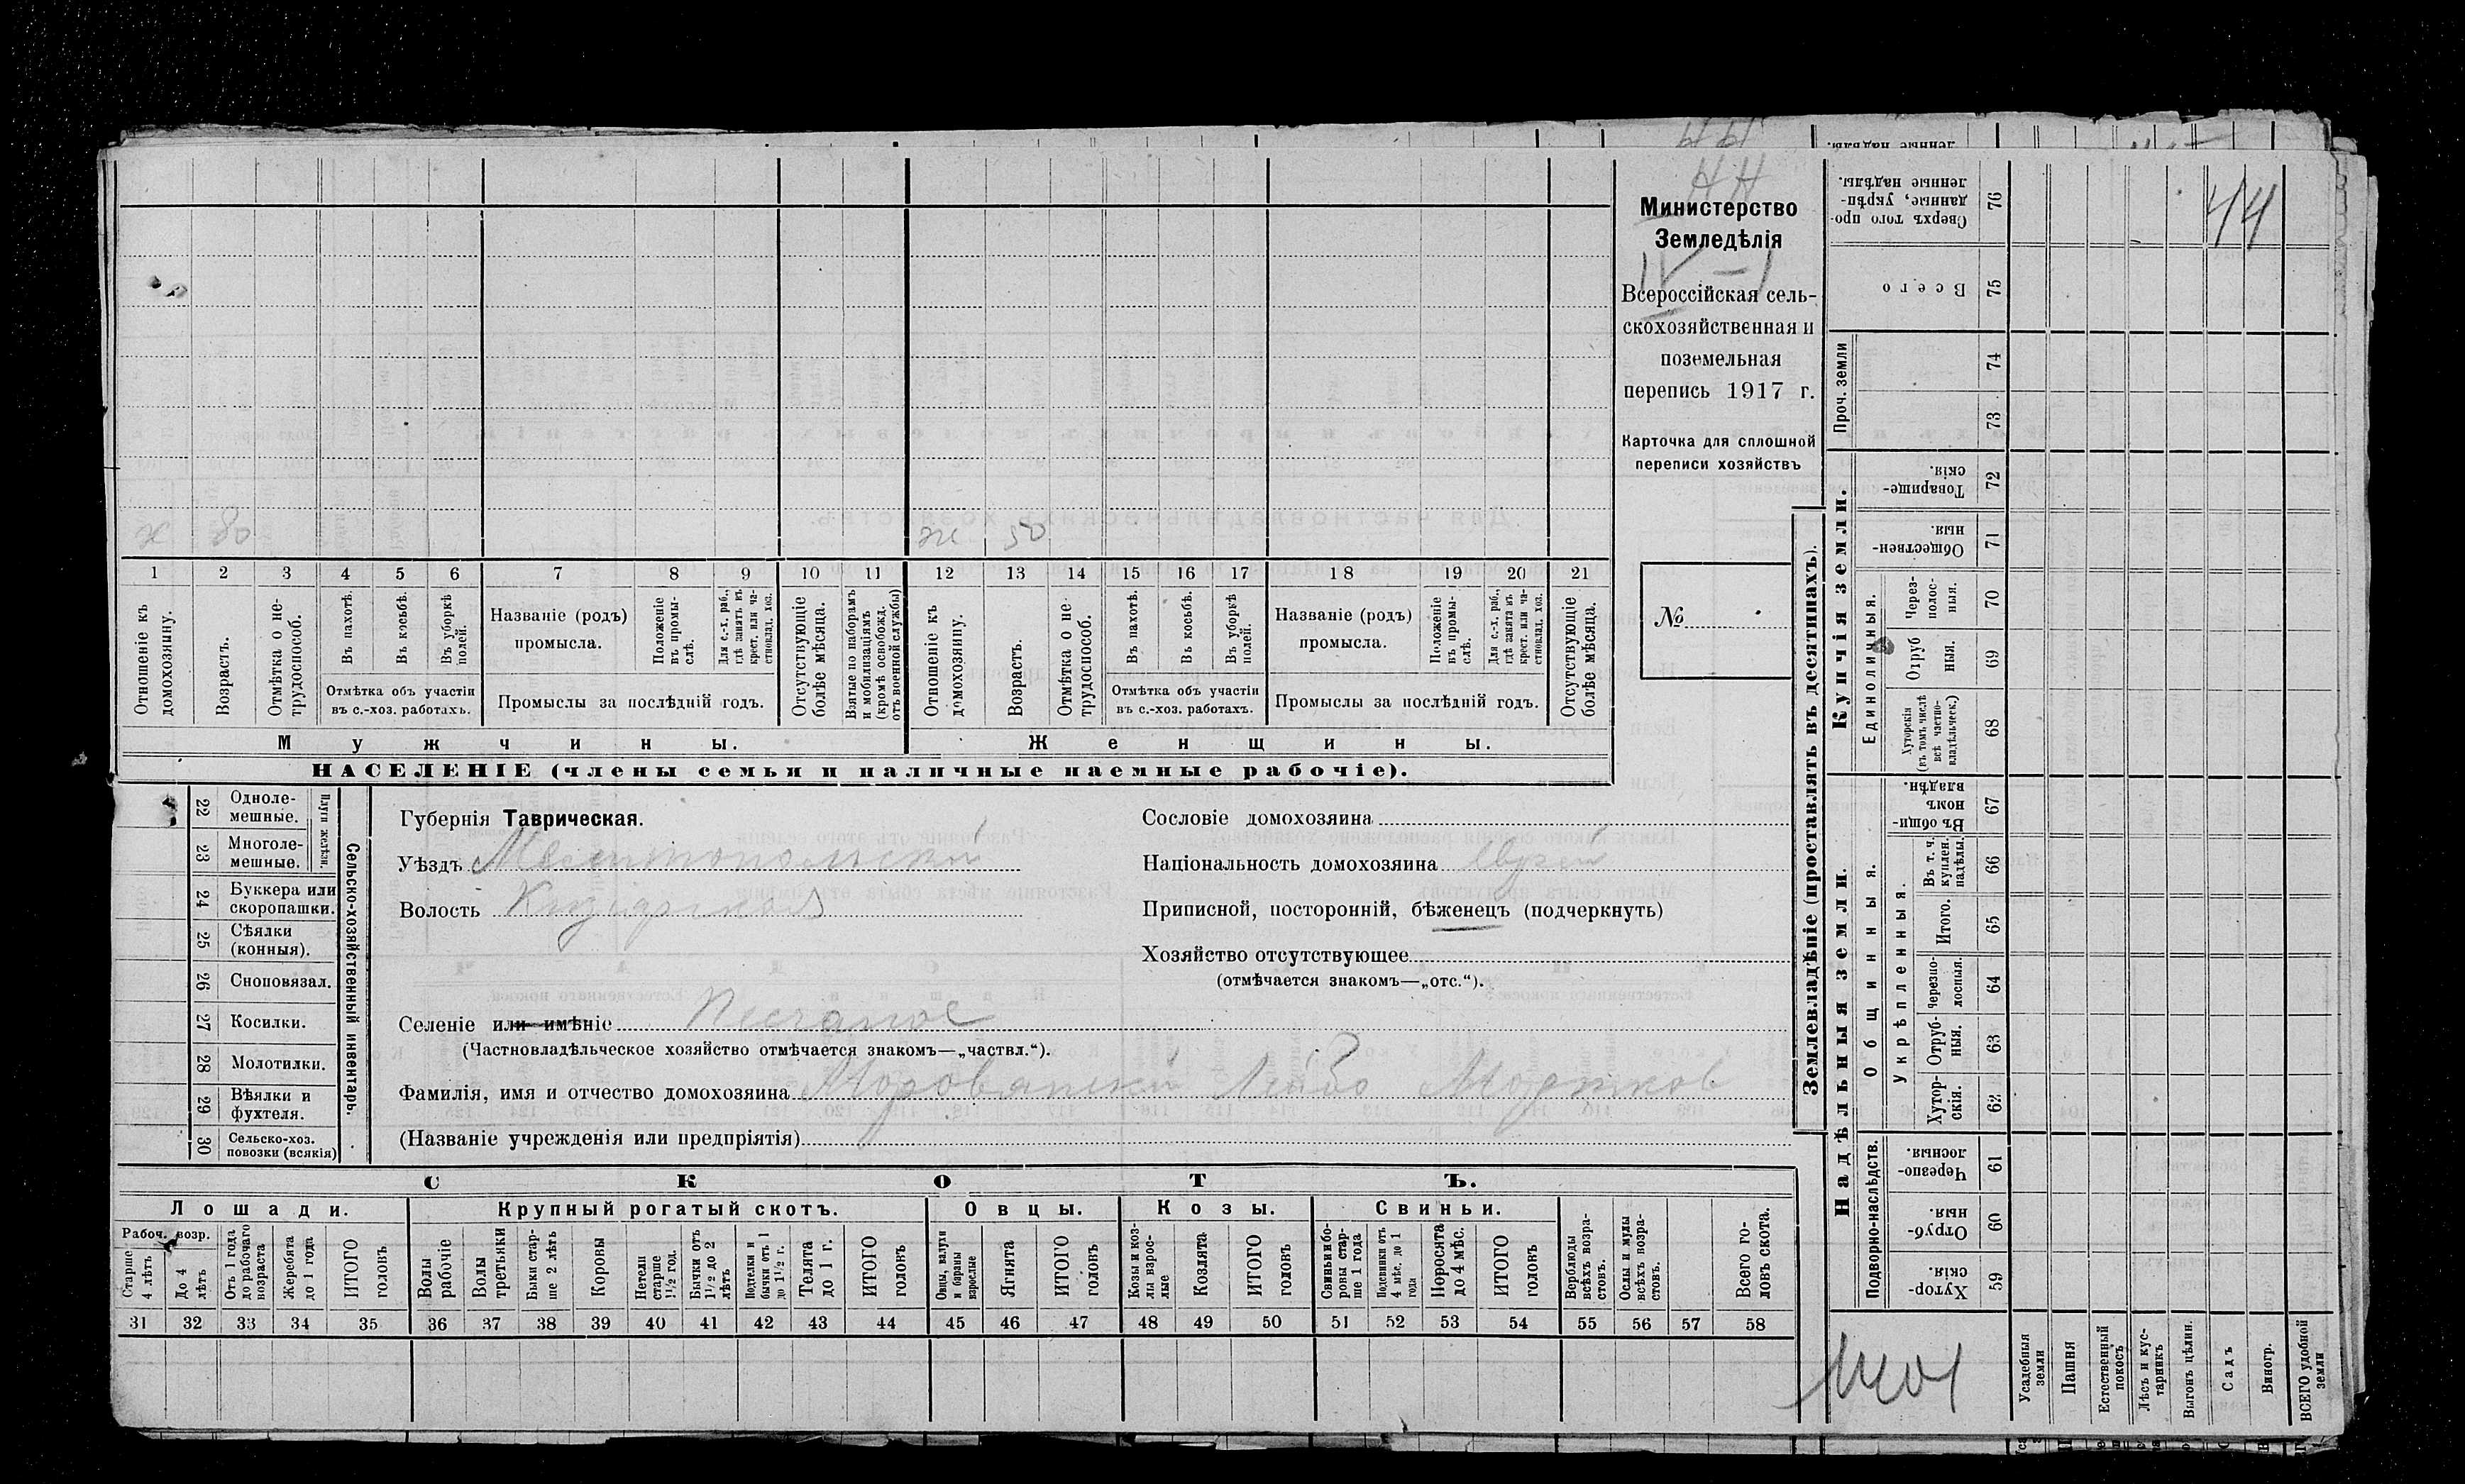 44
НН
Министерство
Земледѣлія
IV – 1
Всероссійская сель-
скохозяйственная и
поземельная
перепись 1917 г.
Карточка для сплошной
переписи хозяйствъ
№
х 80
ж 50
1 2 3 4 5 6 7 8 9 10 11 12 13 14 15 16 17 18 19 20 21
Отношеніе къ домохозяину.
Возрастъ.
Отмѣтка о не-трудоспособ.
Въ пахотѣ.
Въ косьбѣ.
Въ уборкѣ полей.
Отмѣтка объ участіи
въ с.-хоз. работахъ.
Названіе (родъ)
промысла.
Положеніе въ промы-слѣ.
Для с.-х. раб., гдѣ занятъ въ крест. или ча-стновлад. хоз.
Промыслы за послѣдній годъ.
Отсутствующіе болѣе мѣсяца.
Взятые по наборамъ и мобилизаціямъ (кромѣ освобожд. отъ военной службы)
Отношеніе къ домохозяину.
Возрастъ.
Отмѣтка о не трудоспособ.
Въ пахотѣ.
Въ косьбѣ.
Въ уборкѣ полей.
Отмѣтка объ участіи
въ с.-хоз. работахъ.
Названіе (родъ)
промысла.
Положеніе въ промы-слѣ.
Для с.-х. раб., гдѣ занята въ крест. или ча-стновлад. хоз.
Промыслы за послѣдній годъ.
Отсутствующіе болѣе мѣсяца.
Мужчины.
Женщины.
НАСЕЛЕНІЕ (члены семьи и наличные наемные рабочіе).
22 Одноле-мешные.
23 Многоле-мешные.
Плуги желѣзн.
24 Буккера или скоропашки.
25 Сѣялки (конныя).
26 Сноповязал.
27 Косилки.
28 Молотилки.
29 Вѣялки и фухтеля.
30 Сельско-хоз. повозки (всякія)
Сельско-хозяйственный инвентарь.
Губернія Таврическая.
Уѣздъ Мелитопольскій
Волость
Сословіе домохозяина
Національность домохозяина Еврей
Приписной, посторонній, бѣженецъ (подчеркнуть)
Хозяйство отсутствующее
(отмѣчается знакомъ—„отс.“).
Селеніе или имѣніе Песчаное
(Частновладѣльческое хозяйство отмѣчается знакомъ—„частвл.“).
Фамилія, имя и отчество домохозяина Лейбо Мордков
(Названіе учрежденія или предпріятія)
СКОТЪ.
Лошади.
Крупный рогатый скотъ.
Овцы.
Козы.
Свиньи.
Рабоч. возр.
Старше 4 лѣтъ
До 4 лѣтъ
Отъ 1 года до рабочаго возраста
Жеребята до 1 года
ИТОГО головъ
Волы рабочіе
Волы третьяки
Быки стар-ше 2 лѣтъ
Коровы
Нетели старше 1½ год.
Бычки отъ 1½ до 2 лѣтъ
Подтелки и бычки отъ 1 до 1½ г.
Телята до 1 г.
ИТОГО головъ
Овцы, валухи и бараны взрослые
Ягнята
ИТОГО головъ
Козы и коз-лы взрос-лые
Козлята
ИТОГО головъ
Свиньи и бо-ровы стар-ше 1 года
Подсвинки отъ 4 мѣс. до 1 года
Поросята до 4 мѣс.
ИТОГО головъ
Верблюды всѣхъ возра-стовъ.
Ослы и мулы всѣхъ возра-стовъ.
Всего го-ловъ скота.
31 32 33 34 35 36 37 38 39 40 41 42 43 44 45 46 47 48 49 50 51 52 53 54 55 56 57 58
Землевладѣніе (проставлять въ десятинахъ).
Купчія земли.
Надѣльныя земли.
Сверхъ того про-данные, укрѣп-ленные надѣлы. 76
44
Всего 75
Проч. земли 74 73
Товарище-скія. 72
Обществен-ныя. 71
Единоличныя.
Через-полос-ныя. 70
Отруб ныя. 69
Хуторскія (въ томъ числѣ всѣ частно-владѣльческ.) 68
Въ общи-номъ владѣн. 67
Общинныя.
Укрѣпленныя.
Въ т. ч. куплен. надѣлы. 66
Итого. 65
Черезпо-лосныя. 64
Отруб-ныя. 63
Хутор-скія. 62
Подворно-наслѣдств.
Черезпо-лосныя. 61
Отруб-ныя. 60
Хутор-скія. 59
Усадебныя земли
Пашня
Естественный покосъ
Лѣсъ и кус-тарникъ
Выгонъ цѣлин.
Садъ
Виногр.
ВСЕГО удобной земли